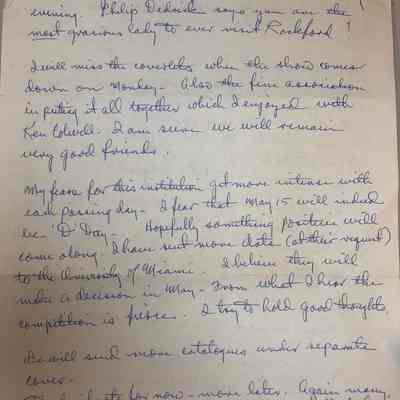 evening. Philip Dedrick says you are the
most gracious lady to ever visit Rockford!
I will miss the coverlets when the show comes
down on Monday. Also the fine association
in putting it all together which I enjoyed with
Ken Colwell. I am sure we will remain
very good friends.
My fears for this institution get more intense with
each passing day - I fear that May 15 will indeed
be "D" Day. Hopefully something positive will
come along. I have sent more data (at their request)
to the University of Miami. I believe they will
make a decision in May - From what I hear the
competition is fierce. I try to hold good thoughts.
We will send more catalogues under separate
cover -
for now - more later. Again many,